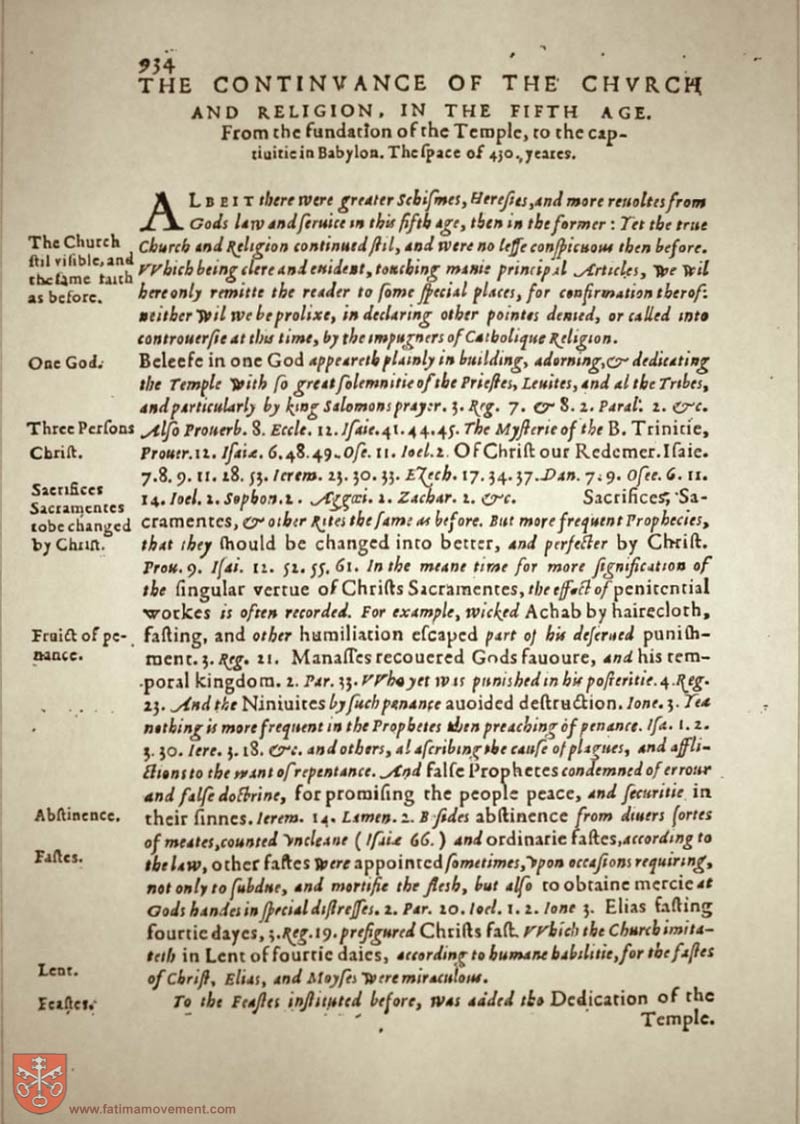 934
THE CONTINVANCE OF THE CHVRCH
AND RELIGION, IN THE FIFTH AGE.
From the fundation of the Temple, to the cap-
tiuitie in Babylon. The ſpace of 430. yeares.
ALBEIT there were greater Schiſmes, Hereſies, and more reuoltes from
Gods law and ſeruice in this fifth age, then in the former: Yet the true
The Church
ſtil viſible, and
the ſame faith
as before.
Church and Religion continued ſtil, and were no leſſe conſpicuous then before.
VVhich being clere and euident, touching manie principal Articles, we wil
here only remitte the reader to ſome ſpecial places, for confirmation therof:
neither wil we be prolixe, in declaring other pointes denied, or called into
controuerſie at this time, by the impugners of Catholique Religion.
One God.
Beleefe in one God appeareth plainly in building, adorning, & dedicating
the Temple with ſo great ſolemnitie of the Prieſtes, Leuites, and al the Tribes,
and particularly by king Salomons prayer. 3. Reg. 7. & 8. 2. Paral. 2. &c.
Three Perſons
Alſo Prouerb. 8. Eccle. 12. Iſaie. 41. 44. 45. The Myſterie of the B. Trinitie,
Chriſt.
Prouer. 12. Iſaiæ. 6. 48. 49. Oſie. 11. Ioel. 2. Of Chriſt our Redemer. Iſaie.
7. 8. 9. 11. 28. 53. Ierem. 23. 30. 33. Ezech. 17. 34. 37. Dan. 7. 9. Oſee. 6. 11.
Sacrifices
Sacramentes
to be changed
by Chriſt.
14. Ioel. 2. Sophon. 2. Aggæi. 2. Zachar. 2. &c. Sacrifices, Sa-
cramentes, & other Rites the ſame as before. But more frequent Prophecies,
that they ſhould be changed into better, and perfecter by Chriſt.
Prou. 9. Iſai. 12. 52. 55. 61. In the meane time for more ſignification of
the ſingular vertue of Chriſts Sacramentes, the effect of penitential
workes is often recorded. For example, wicked Achab by hairecloth,
Fruict of pe-
nance.
faſting, and other humiliation eſcaped part of his deſerued puniſh-
ment. 3. Reg. 21. Manaſſes recouered Gods fauoure, and his tem-
poral kingdom. 2. Par. 33. VVho yet was puniſhed in his poſteritie. 4. Reg.
23. And the Niniuites by ſuch penance auoided deſtruction. Ione. 3. Yea
nothing is more frequent in the Prophetes then preaching of penance. Iſa. 1. 2.
3. 30. Iere. 3. 18. &c. and others, al aſcribing the cauſe of plagues, and affli-
ctions to the want of repentance. And falſe Prophetes condemned of errour
and falſe doctrine, for promiſing the people peace, and ſecuritie in
Abſtinence.
their ſinnes. Ierem. 14. Lamen. 2. Beſides abſtinence from diuers ſortes
of meates, counted vncleane (Iſaiæ 66.) and ordinarie faſtes, according to
Faſtes.
the law, other faſtes were appointed ſometimes, vpon occaſions requiring,
not only to ſubdue, and mortifie the fleſh, but alſo to obtaine mercie at
Gods handes in ſpecial diſtreſſes. 2. Par. 20. Ioel. 1. 2. Ione 3. Elias faſting
fourtie dayes, 3. Reg. 19. prefigured Chriſts faſt. VVhich the Church imita-
teth in Lent of fourtie daies, according to humane habilitie, for the faſtes
Lent.
of Chriſt, Elias, and Moyſes were miraculous.
Feaſtes.
To the Feaſtes inſtituted before, was added the Dedication of the
Temple.
www.fatimamovement.com